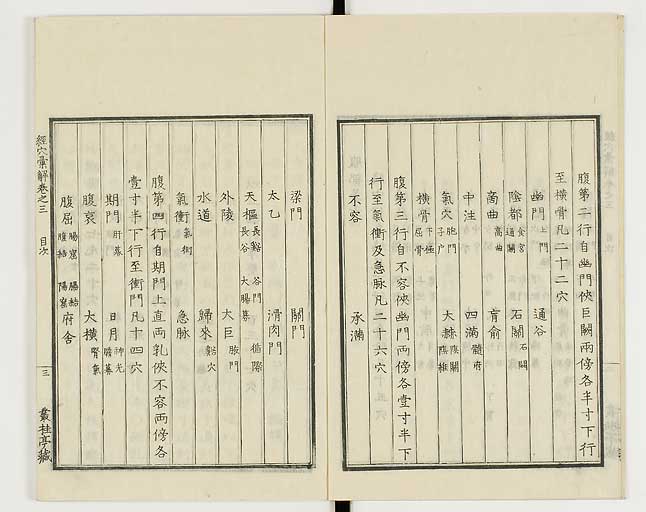 腹第二行自幽門俠巨闕兩傍各半寸下行
至橫骨凡二十二穴
幽門 上門 通谷
陰都 食宮 通關 石關 石闕
商曲 高曲 肓俞
中注 四滿 髓府
氣穴 胞門 子戶 大赫 陰維 陰關
橫骨 下極 屈骨
腹第三行自不容俠幽門兩傍各壹寸半下
行至氣衝及急脉凡二十六穴
不容 承滿
梁門 關門
太乙 滑肉門
天樞 長谿 谷門 長谷 大腸募 循際
外陵 大巨 腋門
水道 歸來 谿穴
氣衝 氣街 急脉
腹第四行自期門上直兩乳俠不容兩傍各
壹寸半下行至衝門凡十四穴
期門 肝募 日月 神光 膽募
腹哀 大橫 腎氣
腹屈 腸窟 腸結 腹結 陽窟 府舍
經穴彙解卷之三 目次 三 叢桂亭藏